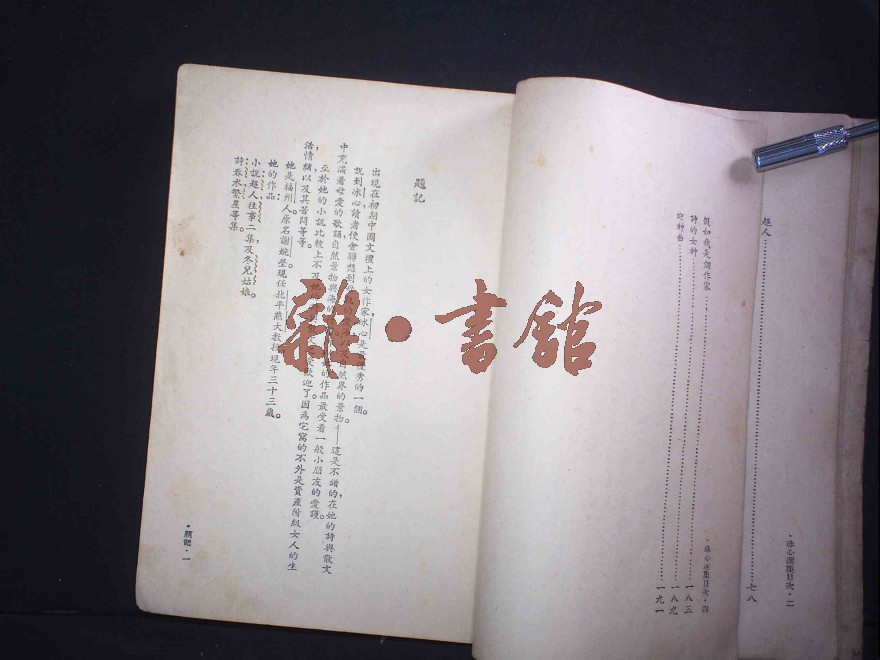 超人……七八
·冰心選集目次·二
假如我是個作家……一八五
詩的女神……一八九
迎神曲……一九一
·冰心選集目次·四
題記
出現在初期中國文壇上的女作家冰心是最優秀的一個。
說到冰心讀者便會聯想到
自然界的景物——這是不錯的,在她的詩與散文
中充滿着母愛的歌頌,自然景物與海的
至於她的小說比較上不及她
的作品最受着一般小朋友的愛護。
歡迎了因為它寫的不外是資產階級女人的生
活情緒以及其苦悶等等。
她是福州人原名謝婉瑩現任北平燕大教授現年三十三歲。
她的作品:
小說超人往事二集及冬兒姑娘。
詩春水繁星等集。
·題記·一
雜·書館